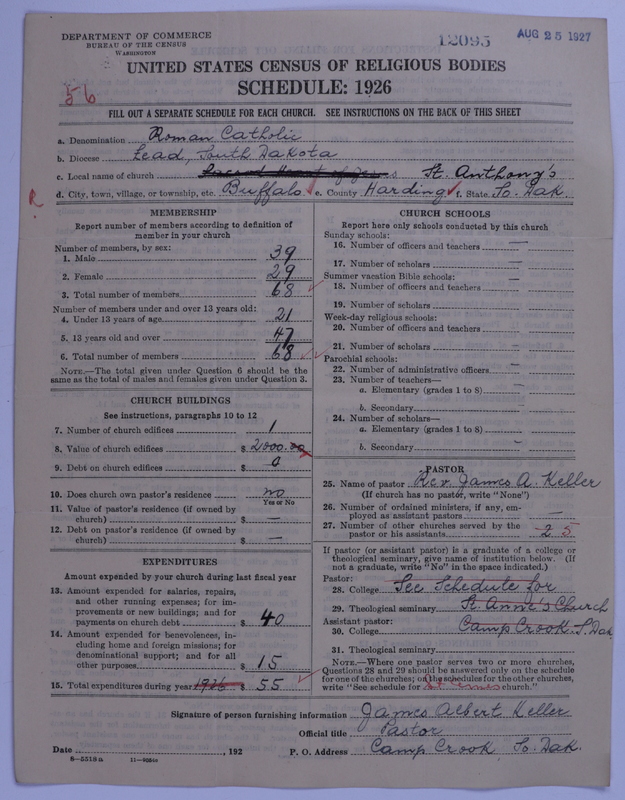 DEPARTMENT OF COMMERCE
BUREAU OF THE CENSUS
WASHINGTON
12095
AUG 25 1927
UNITED STATES CENSUS OF RELIGIOUS BODIES
SCHEDULE: 1926
56
FILL OUT A SEPARATE SCHEDULE FOR EACH CHURCH. SEE INSTRUCTIONS ON THE BACK OF THIS SHEET
a. Denomination Roman Catholic
b. Diocese Lead, South Dakota
c. Local name of church Sacred Heart of Jesus St. Anthony's
d. City, town, village, or township, etc. Buffalo e. County Harding f. State So. Dak.
R
MEMBERSHIP
Report number of members according to definition of member in your church
Number of members, by sex:
1. Male 39
2. Female 29
3. Total number of members 68
Number of members under and over 13 years old:
4. Under 13 years of age 21
5. 13 years old and over 47
6. Total number of members 68
NOTE.—The total given under Question 6 should be the same as the total of males and females given under Question 3.
CHURCH BUILDINGS
See instructions, paragraphs 10 to 12
7. Number of church edifices 1
8. Value of church edifices $ 2000.00
9. Debt on church edifices $ 0
10. Does church own pastor's residence no
Yes or No
11. Value of pastor's residence (if owned by church) $ —
12. Debt on pastor's residence (if owned by church) $ —
EXPENDITURES
Amount expended by your church during last fiscal year
13. Amount expended for salaries, repairs, and other running expenses; for improvements or new buildings; and for payments on church debt $ 40
14. Amount expended for benevolences, including home and foreign missions; for denominational support; and for all other purposes $ 15
15. Total expenditures during year 1926 $ 55
CHURCH SCHOOLS
Report here only schools conducted by this church
Sunday schools:
16. Number of officers and teachers —
17. Number of scholars —
Summer vacation Bible schools:
18. Number of officers and teachers —
19. Number of scholars —
Week-day religious schools:
20. Number of officers and teachers —
21. Number of scholars —
Parochial schools:
22. Number of administrative officers —
23. Number of teachers—
a. Elementary (grades 1 to 8) —
b. Secondary —
24. Number of scholars—
a. Elementary (grades 1 to 8) —
b. Secondary —
PASTOR
25. Name of pastor Rev. James A. Keller
(If church has no pastor, write "None")
26. Number of ordained ministers, if any, employed as assistant pastors —
27. Number of other churches served by the pastor or his assistants 2 5
If pastor (or assistant pastor) is a graduate of a college or theological seminary, give name of institution below. (If not a graduate, write "No" in the space indicated.)
Pastor:
28. College See Schedule for
29. Theological seminary St. Anne's Church
Assistant pastor:
30. College Camp Crook S. Dak
31. Theological seminary
NOTE.—Where one pastor serves two or more churches, Questions 28 and 29 should be answered only on the schedule for one of the churches; on the schedules for the other churches, write "See schedule for St Annes church."
Signature of person furnishing information James Albert Keller
Official title Pastor
Date , 192 P. O. Address Camp Crook So. Dak.
8—5518a 11—9056a